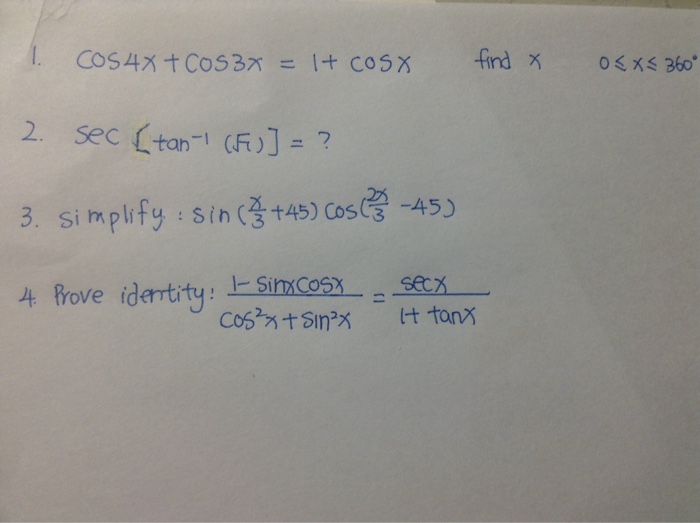 1. cos4x + cos3x = 1 + cosx find x 0 ≤ x ≤ 360°
2. sec [tan⁻¹ (√1)] = ?
3. simplify : sin(x/3 + 45) cos(2x/3 - 45)
4. Prove identity: (1 - sinxcosx)/(cos²x + sin²x) = secx/(1 + tanx)